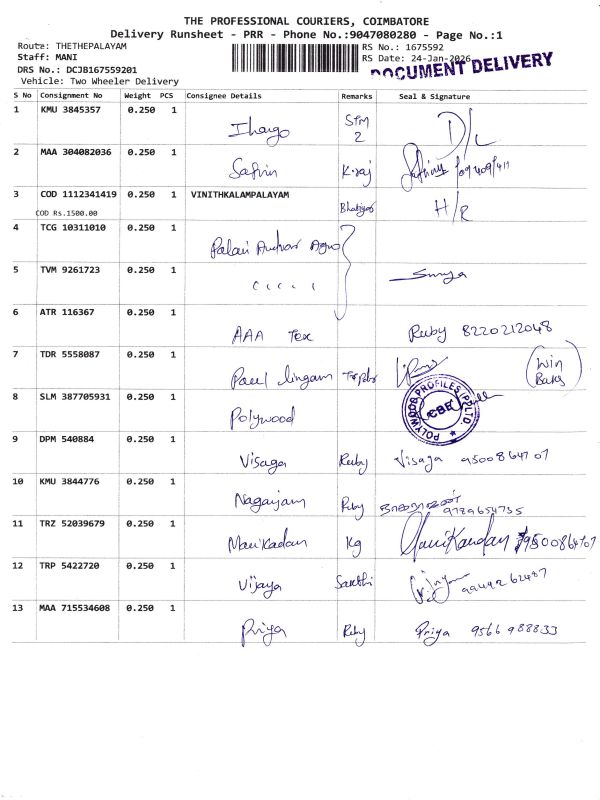 THE PROFESSIONAL COURIERS, COIMBATORE
Delivery Runsheet - PRR - Phone No.:9047080280 - Page No.:1
Route: THETHEPALAYAM
RS No.: 1675592
Staff: MANI
RS Date: 24-Jan-2026
DOCUMENT DELIVERY
DRS No.: DCJB167559201
Vehicle: Two Wheeler Delivery
S No Consignment No Weight PCS Consignee Details Remarks Seal & Signature
1 KMU 3845357 0.250 1 D/L
2 MAA 304082036 0.250 1 Safrin K.raj
3 COD 1112341419 0.250 1 VINITHKALAMPALAYAM H/R
COD Rs.1500.00
4 TCG 10311010 0.250 1 Palani
5 TVM 9261723 0.250 1
6 ATR 116367 0.250 1 AAA Tex Ruby 8220212048
7 TDR 5558087 0.250 1 Paul lingam (Win
8 SLM 387705931 0.250 1 Polywood POLYWOOD PROFILES (P) LTD. CBE
9 DPM 540884 0.250 1 Visaga Ruby Visaga 9500864707
10 KMU 3844776 0.250 1 Nagarjam Ruby 9789654735
11 TRZ 52039679 0.250 1 Manikadan Kg Manikandan 9500864707
12 TRP 5422720 0.250 1 Vijaya Sakthi
13 MAA 715534608 0.250 1 Priya Ruby Priya 9566988833